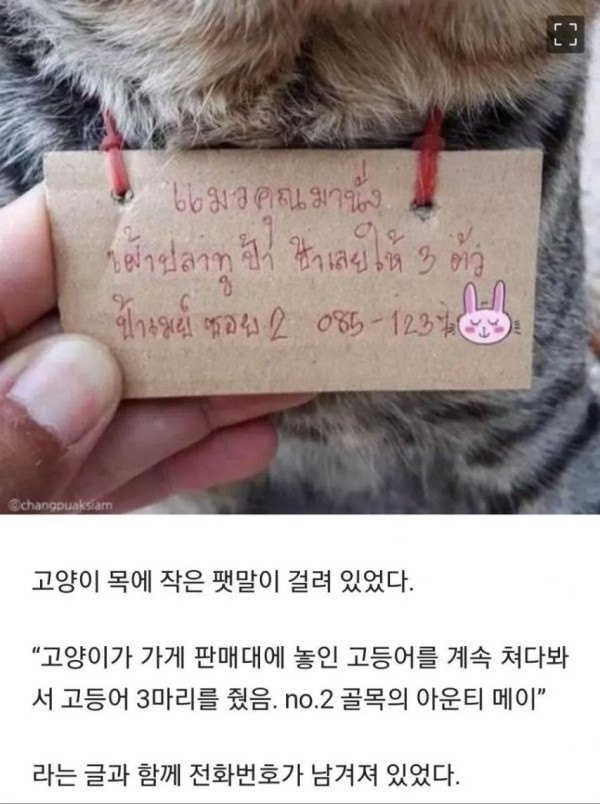 แมวคุณมานั่ง
เฝ้าปลาทูป้า ช้าเลยให้ 3 ตัว
ป้าเมย์ ซอย 2 085-123
©changpuaksiam
고양이 목에 작은 팻말이 걸려 있었다.
“고양이가 가게 판매대에 놓인 고등어를 계속 쳐다봐
서 고등어 3마리를 줬음. no.2 골목의 아운티 메이”
라는 글과 함께 전화번호가 남겨져 있었다.